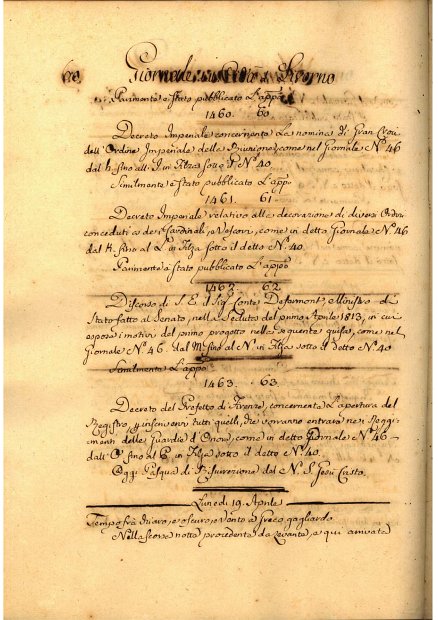 Giornale di Livorno
Parimente è stato pubblicato l'appo
1460. 60.
Decreto Imperiale concernente la nomina di Gran Croci
dell'Ordine Imperiale della Riunione, come nel Giornale N.° 46
dal h. fino all' I. in Filza sotto il N.° 40.
Similmente è stato pubblicato l'appo
1461. 61.
Decreto Imperiale relativo alle decorazioni di diversi Ordini
conceduti a dei Cardinali, e Vescovi, come in detto Giornale N.° 46
dal K. fino al L. in Filza sotto il detto N.° 40.
Parimente è stato pubblicato l'appo
1462. 62.
Discorso di S. E. il Sig. Conte Defermont, Ministro di
Stato fatto al Senato, nella seduta del primo Aprile 1813, in cui
espone i motivi del primo progetto nella seguente guisa, come nel
Giornale N.° 46. dal M. fino al N. in Filza sotto il detto N.° 40.
Similmente l'appo
1463. 63.
Decreto del Prefetto di Firenze, concernente l'apertura del
Registro, per inscriversi tutti quelli, che vorranno entrare nei Reggi-
menti delle Guardie d'Onore, come in detto Giornale N.° 46
dall' O. fino al P. in Filza sotto il detto N.° 40.
Oggi Pasqua di Risurrezione del N. S. Gesù Cristo.
Lunedì 19. Aprile
Tempo frà chiaro, e oscuro, e vento a Greco gagliardo.
Nella scorsa notte procedente da Levante, è qui arrivata